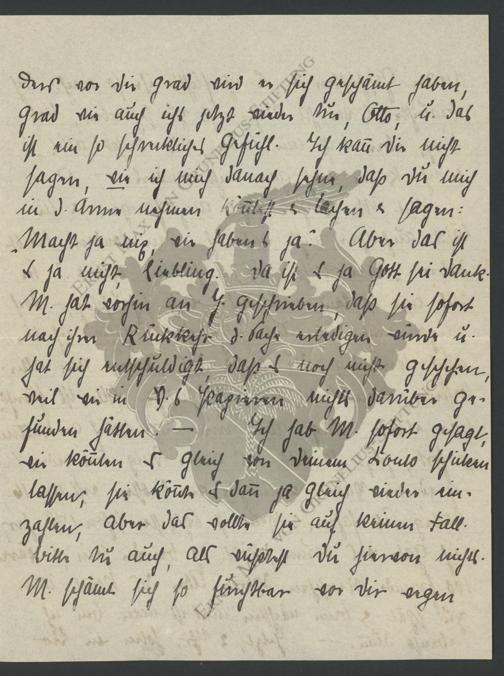 Ders vor dir grad wird er sich geschämt haben,
grad wie auch ichs jetzt wieder tu, Otto, u. das
ist ein so schreckliches Gefühl. Ich kann dir nicht
sagen, wie ich mich danach sehne, daß du mich
in d. Arme nehmen könntest u. lachen u. sagen:
„Macht ja nix, wir habens ja“. Aber das ist
es ja nicht, Liebling. Da ist es ja Gott sei Dank.
M. hat vorhin an Y. geschrieben, daß sie sofort
nach ihrer Rückkehr d. Sache erledigen würde u.
hat sich entschuldigt, daß es noch nicht geschehen,
weil wir in V.s Papieren nichts darüber ge-
funden hätten. — Ich hab M. sofort gesagt,
wir könnten es gleich von deinem Konto schicken
lassen, sie könnte es dann ja gleich wieder ein-
zahlen, aber das wollte sie auf keinen Fall.
bitte tu auch, als wüßtest du hiervon nichts.
M. schämt sich so furchtbar vor dir wegen
ERNST MAX VON GRUNELIUS-STIFTUNG